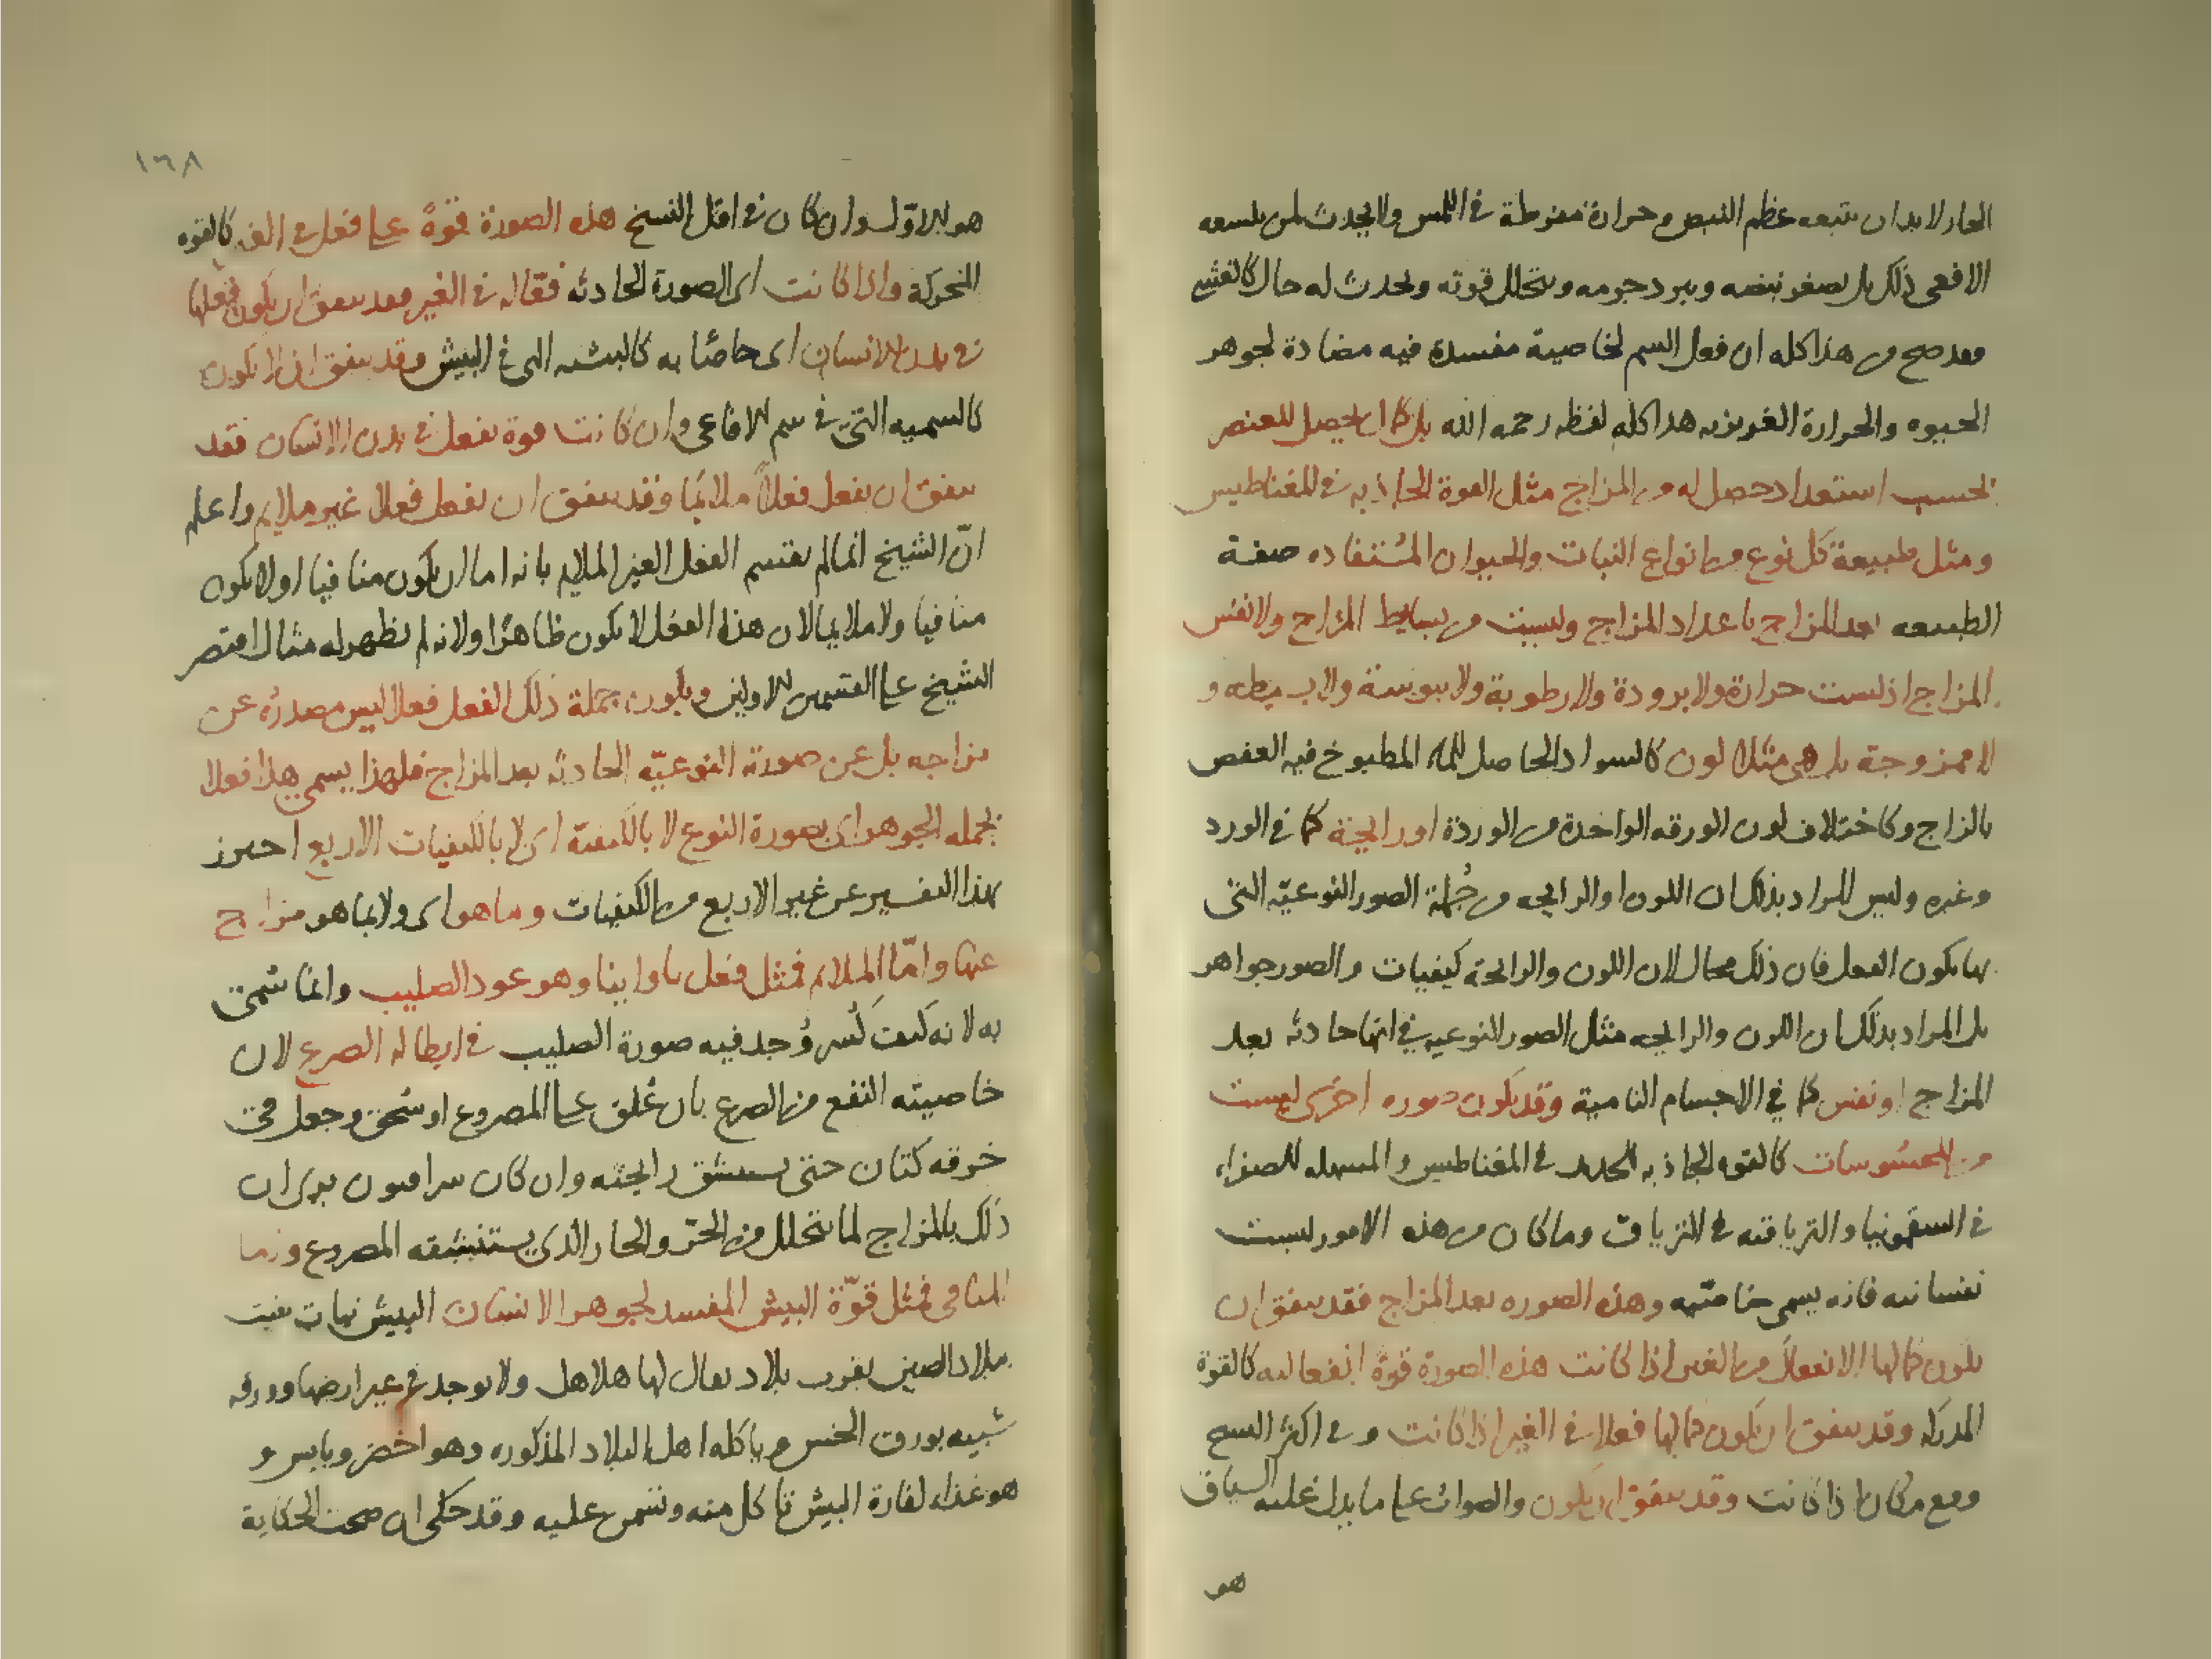 الحار لا بد ان يتبعه عظم النبض وحرارة مفرطة في اللمس ولا يحدث لمن يلسعه
الافعى ذلك بل يصغر نبضه ويبرد جرمه ويتحلل قوته ويحدث له حال كالغشي
فقد صح من هذا كله ان فعل السم لخاصية مفسدة فيه مضادة لجوهر
الحيوه والحرارة الغريزيه هذا كله لفظه رحمه الله بل كمال يحصل للعنصر
بحسب استعداد حصل له من المزاج مثل القوة الجاذبه في المغناطيس
ومثل طبيعة كل نوع من انواع النبات والحيوان المستفاده صفة
الطبيعه بعد المزاج باعداد المزاج وليست من بسايط المزاج ولا نفس
المزاج اذ ليست حرارة ولا برودة ولا رطوبة ولا يبوسة ولا بسيطه و
لا ممزوجة بل هي مثل لون كالسواد الحاصل للماء المطبوخ فيه العفص
بالزاج وكاختلاف لون الورقه الواحدة من الوردة او رايحة كما في الورد
وغيره وليس المراد بذلك ان اللون او الرايحه من جملة الصور النوعيّه التي
بها يكون الفعل فان ذلك محال لان اللون والرايحة كيفيات والصور جواهر
بل المراد بذلك ان اللون والرايحه مثل الصور النوعيه في انها حادثه بعد
المزاج او نفس كما في الاجسام النامية وقد يكون صوره اخرى ليست
من المحسوسات كالقوه الجاذبه للحديد في المغناطيس والمسهله للصفراء
في السقمونيا والترياقيه في الترياق وما كان من هذه الامور ليست
نفسانيه فانه يسمى خاصّيه وهذه الصوره بعد المزاج فقد يتفق ان
يكون كمالها الانفعال من الغير اذا كانت هذه الصورة قوة انفعاليه كالقوة
المدركه وقد يتفق ان يكون كمالها فعلا في الغير اذا كانت وفي اكثر النسخ
ومع مكان اذا كانت وقد يتفق ان يكون والصواب على ما يدل عليه السياق
هو
١٦٨
هو الاوّل وان كان في اقل النسخ هذه الصورة قوةً على فعل في الغير كالقوه
المحركة واذا كانت اى الصورة الحادثه فعّاله في الغير فقد يتفق ان يكون فعلها
في بدن الانسان اى خاصّا به كالبيشيه التي في البيش وقد يتفق ان لا يكون
كالسميه التي في سم الافاعي وان كانت قوة تفعل في بدن الانسان فقد
يتفق ان يفعل فعلاً ملايمًا وقد يتفق ان يفعل فعلا غير ملايم واعلم
انّ الشيخ انما لم يقسم الفعل الغير الملايم بانه اما ان يكون منافيا او لا يكون
منافيا ولا ملايما لان هذا الفعل لا يكون ظاهرًا ولانه لم يظهر له مثال اقتصر
الشيخ على القسمين الاولين ويكون جملة ذلك الفعل فعلا ليس مصدرُه عن
مزاجه بل عن صورته النوعيّه الحادثه بعد المزاج فلهذا يسمى هذا فعلا
بجمله الجوهر اى بصورة النوع لا بالكيفيّة اى لا بالكيفيات الاربع احترز
بهذا التفسير عن غير الاربع من الكيفيات وما هو اى ولا بما هو مزاج
عنها وامّا الملايم فمثل فعل فاوانيا وهو عود الصليب وانما سُمّي
به لانه كيف كُسر وُجد فيه صورة الصليب في ابطاله الصرع لان
خاصيته النفع من الصرع بان عُلق على المصروع او سُحق وجعل في
خرقه كتان حتى يستنشق رايحته وان كان سرافيون يرى ان
ذلك بالمزاج لما يتحلل من الحرّ والحار الذي يستنشقه المصروع واما
المنافي فمثل قوّة البيش المفسد لجوهر الانسان البيش نبات ينبت
ببلاد الصين بقرب بلاد يقال لها هلاهل ولا يوجد في غير ارضها وورقه
شبيه بورق الخس وياكله اهل البلاد المذكوره وهو اخضر ويابس و
هو غذاء لفارة البيش تاكل منه وتسمن عليه وقد حكى ان صحت الحكاية